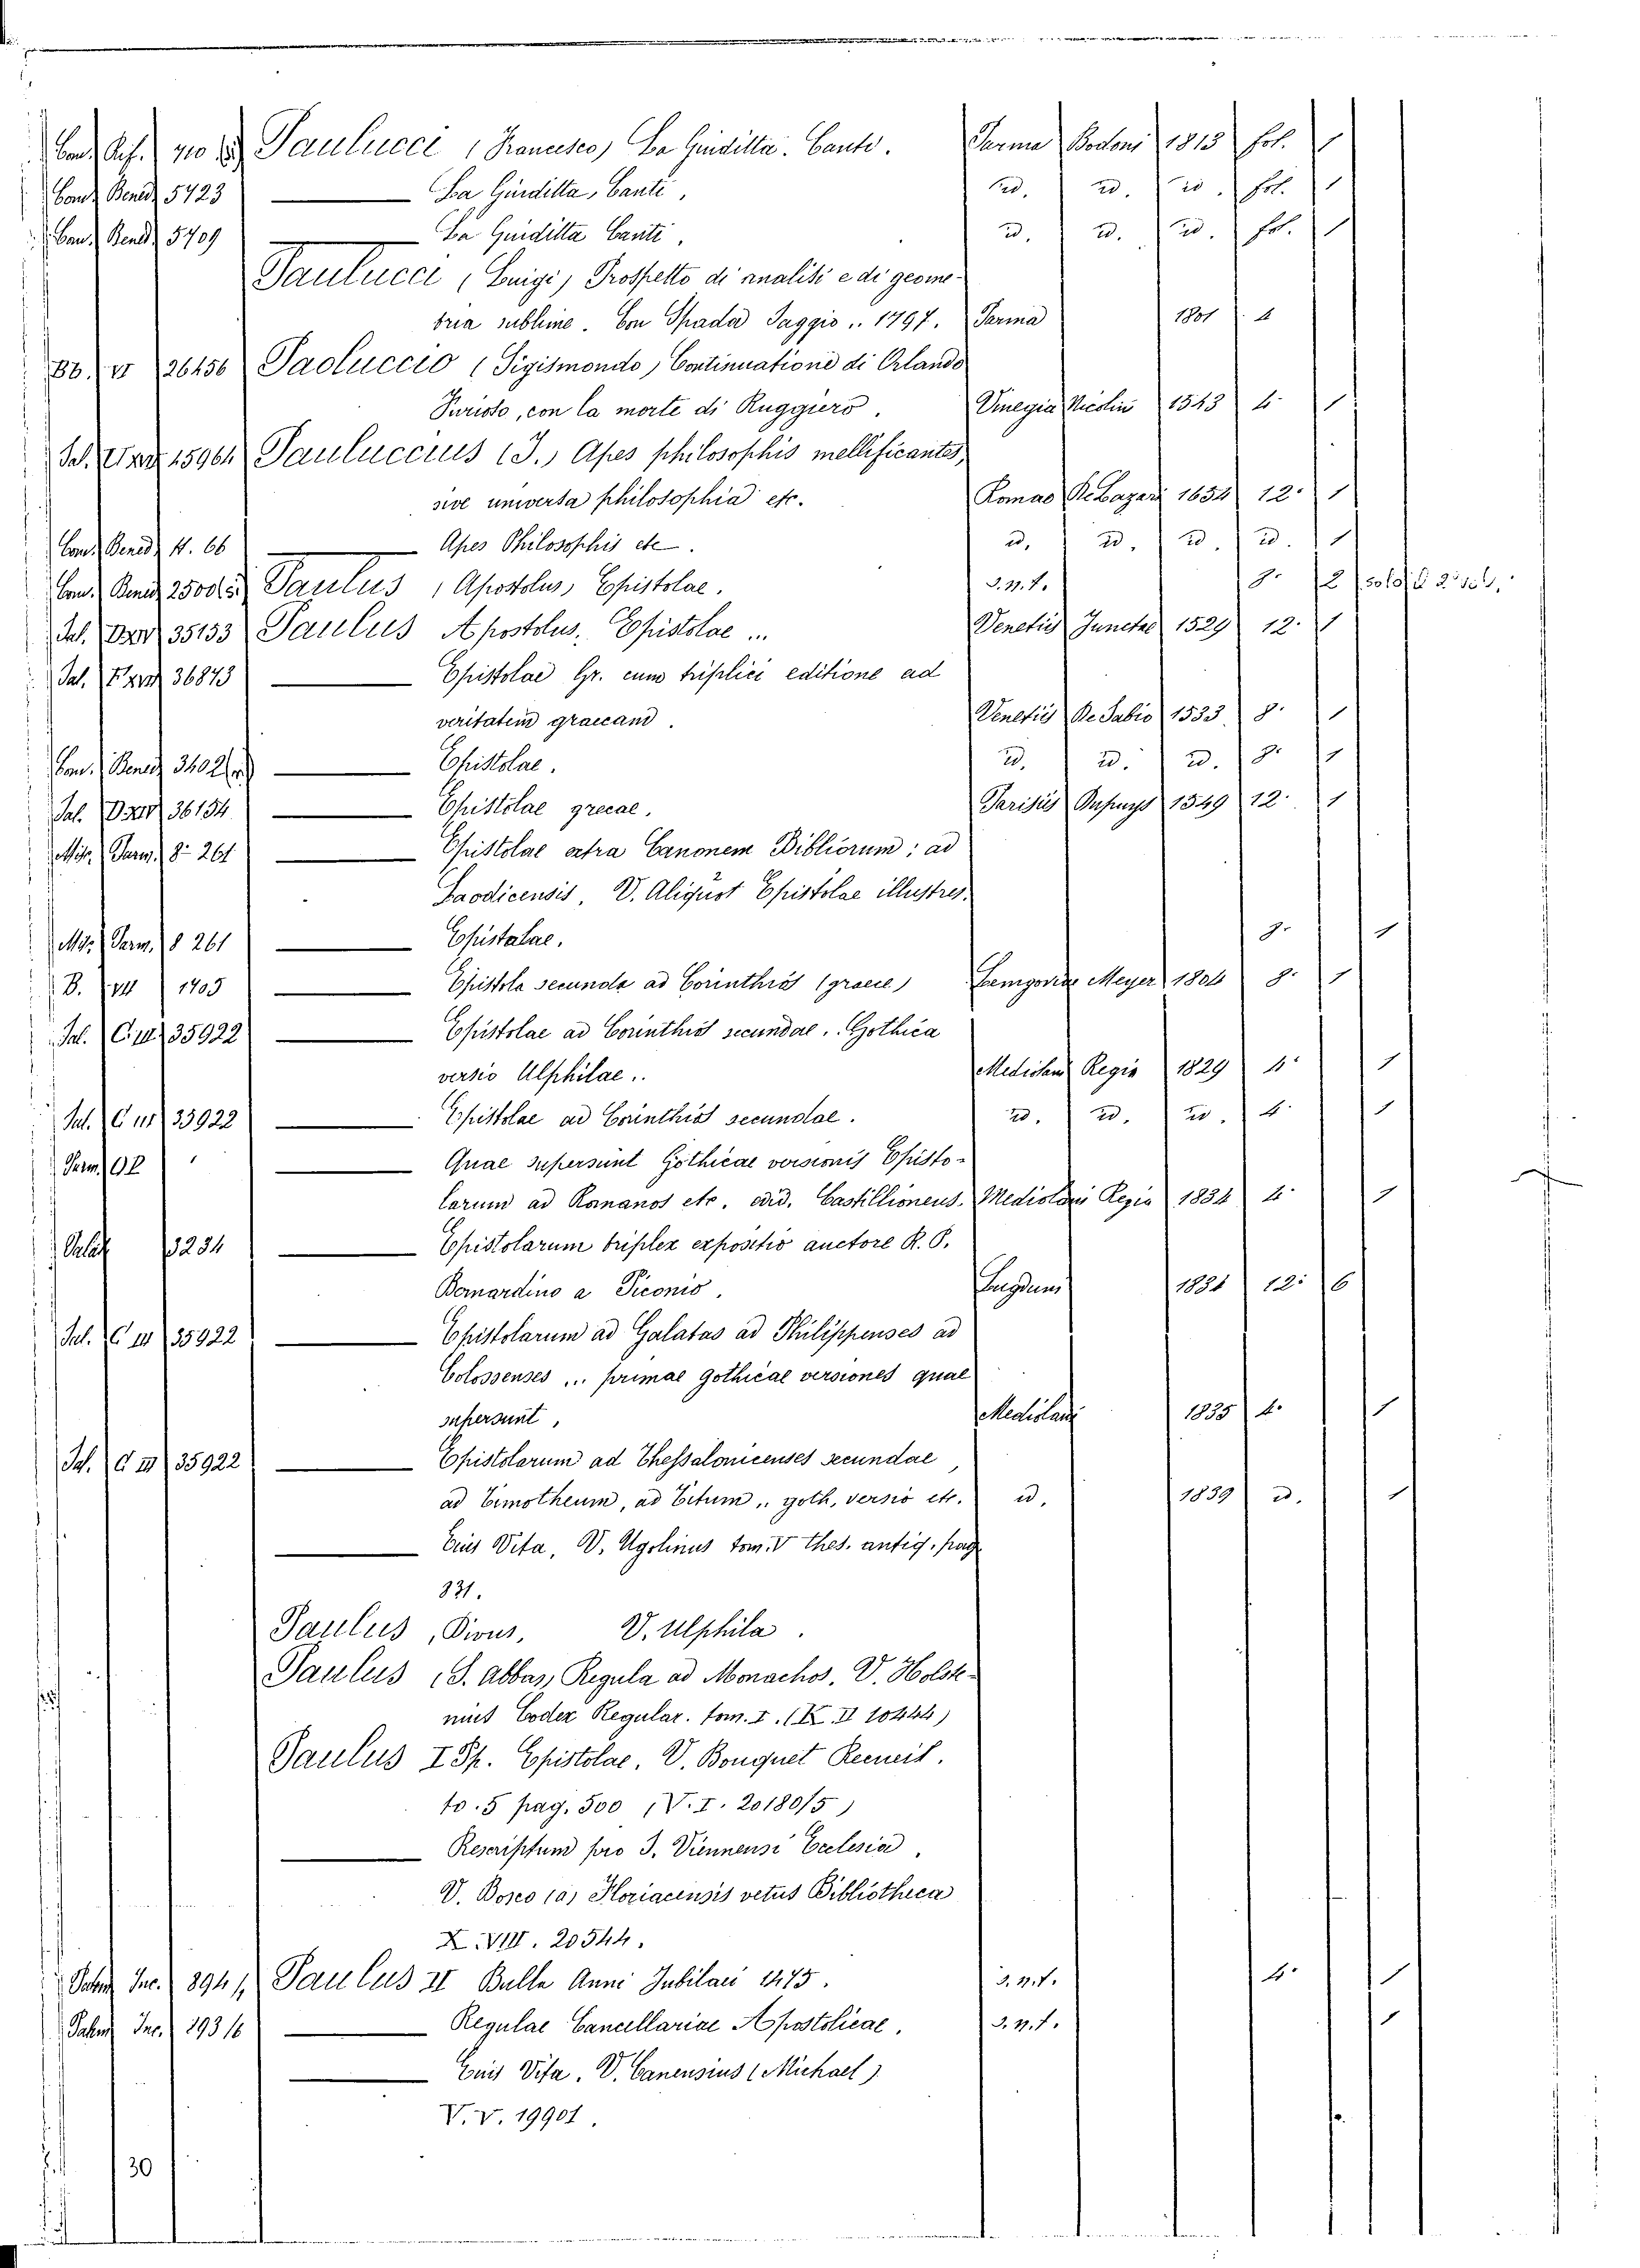 Paulucci (Francesco) La Giuditta. Canti. Parma Bodoni 1813 fol. 1
Cam. Bened. 5423 La Giuditta, Canti, id. id. id. fol. 1
Cam. Bened. 5709 La Guiditta Canti, id. id. id. fol. 1
Paulucci (Luigi) Prospetto di analisi e di geome-
tria sublime. Con Spada Saggio .. 1797. Parma 1801 4
BB. VI 26456 Paoluccio (Sigismondo) Continuatione di Orlando
Furioso, con la morte di Ruggiero. Vinegia Nicolin 1543 4 1
Sal. 15964 Pauluccius (J.) Apes philosophis mellificantes,
sive universa philosophia etc. Romae De Lazari 1654 12. 1
Cam. Bened. 11. 66 Apes Philosophis etc. id. id. id. id. 1
Cam. Bened. 2500 Paulus (Apostolus) Epistolae. S. n. t. 8. 2
Sal. 35133 Paulus Apostolus. Epistolae ... Venetiis Junctae 1529 12. 1
Sal. 36873 Epistolae Gr. cum triplici editione ad
veritatem graecam. Venetiis De Sabio 1533 8. 1
Cam. Bened. 3402 Epistolae. id. id. id. 8. 1
Sal. 36154 Epistolae grecae. Parisiis 1549 12. 1
Mss. Parm. 8- 261 Epistolae extra Canonem Bibliorum: ad
Laodicensis, V. Aliquot Epistolae illustres.
Mss. Parm. 8 261 Epistalae. 8. 1
B. VII 1405 Epistola secunda ad Corinthios (graece) Lemgoviae Meyer 1804 8. 1
Sal. C. III 35922 Epistolae ad Corinthios secundae. Gothica
versio Ulphilae.. Mediolani Regia 1829 4. 1
Sal. C III 35922 Epistolae ad Corinthios secundae. id. id. id. 4. 1
Parm. Quae supersunt Gothicae versionis Episto-
larum ad Romanos etc. edid. Castillioneus. Mediolani Regia 1834 4. 1
Palat. 13234 Epistolarum triplex expositio auctore R. P.
Bernardino a Piconio. Lugduni 1831 12. 6
Sal. C III 35922 Epistolarum ad Galatas ad Philippenses ad
Colossenses ... primae gothicae versiones quae
supersunt, Mediolani 1835 4. 1
Sal. C III 35922 Epistolarum ad Thessalonicenses secundae,
ad Timotheum, ad Titum .. goth. versio etc. id. 1839 id. 1
Eius Vita, V. Ugolinus tom. V thes. antiq. pag
831.
Paulus, Divus, V. Ulphila.
Paulus (S. abbas) Regula ad Monachos. V. Holste-
nius Codex Regular. tom. I. (K. II 10444)
Paulus I Pp. Epistolae. V. Bouquet Recueil.
to. 5 pag. 500 (V. I. 20180/5)
Rescriptum pro J. Viennensi Ecclesia,
V. Bosco (a) Floriacensis vetus Bibliotheca
X. VIII. 20544.
Inc. 894/1 Paulus II Bulla Anni Jubilaei 1475. S. n. t. 4. 1
Inc. 893/6 Regulae Cancellariae Apostolicae. S. n. t. 1
Eius Vita. V. Canensius (Michael)
V. V. 19901.
30